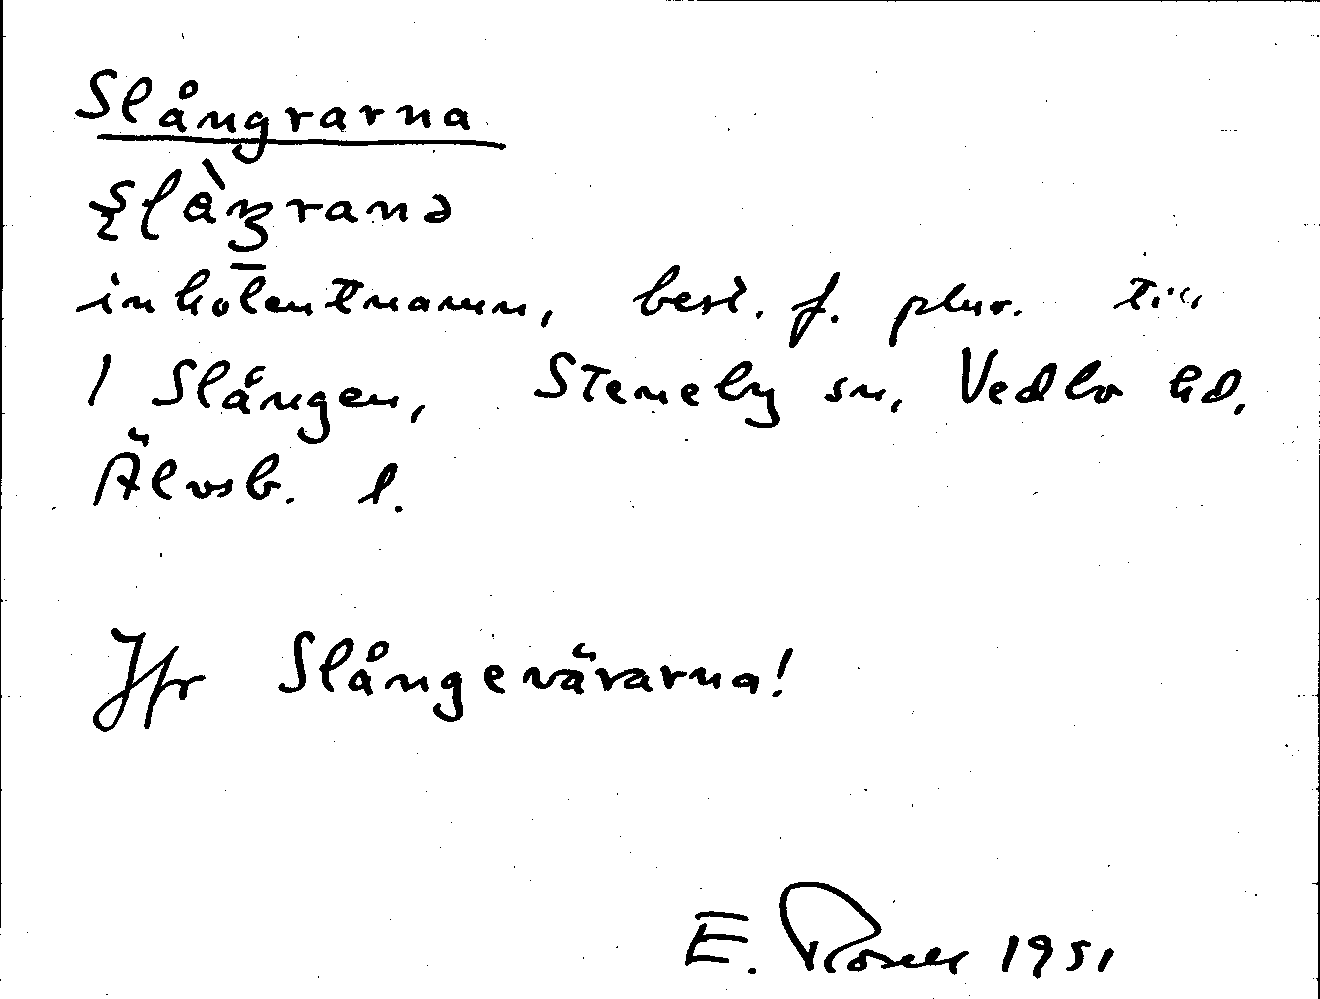 Slångrarna
inbolentnamn, best. f. plur. till
1 Slången, Steneby sn, Vedbo hd.
Älvsb. l.
Jfr Slångevärarna!
E. Rosell 1951